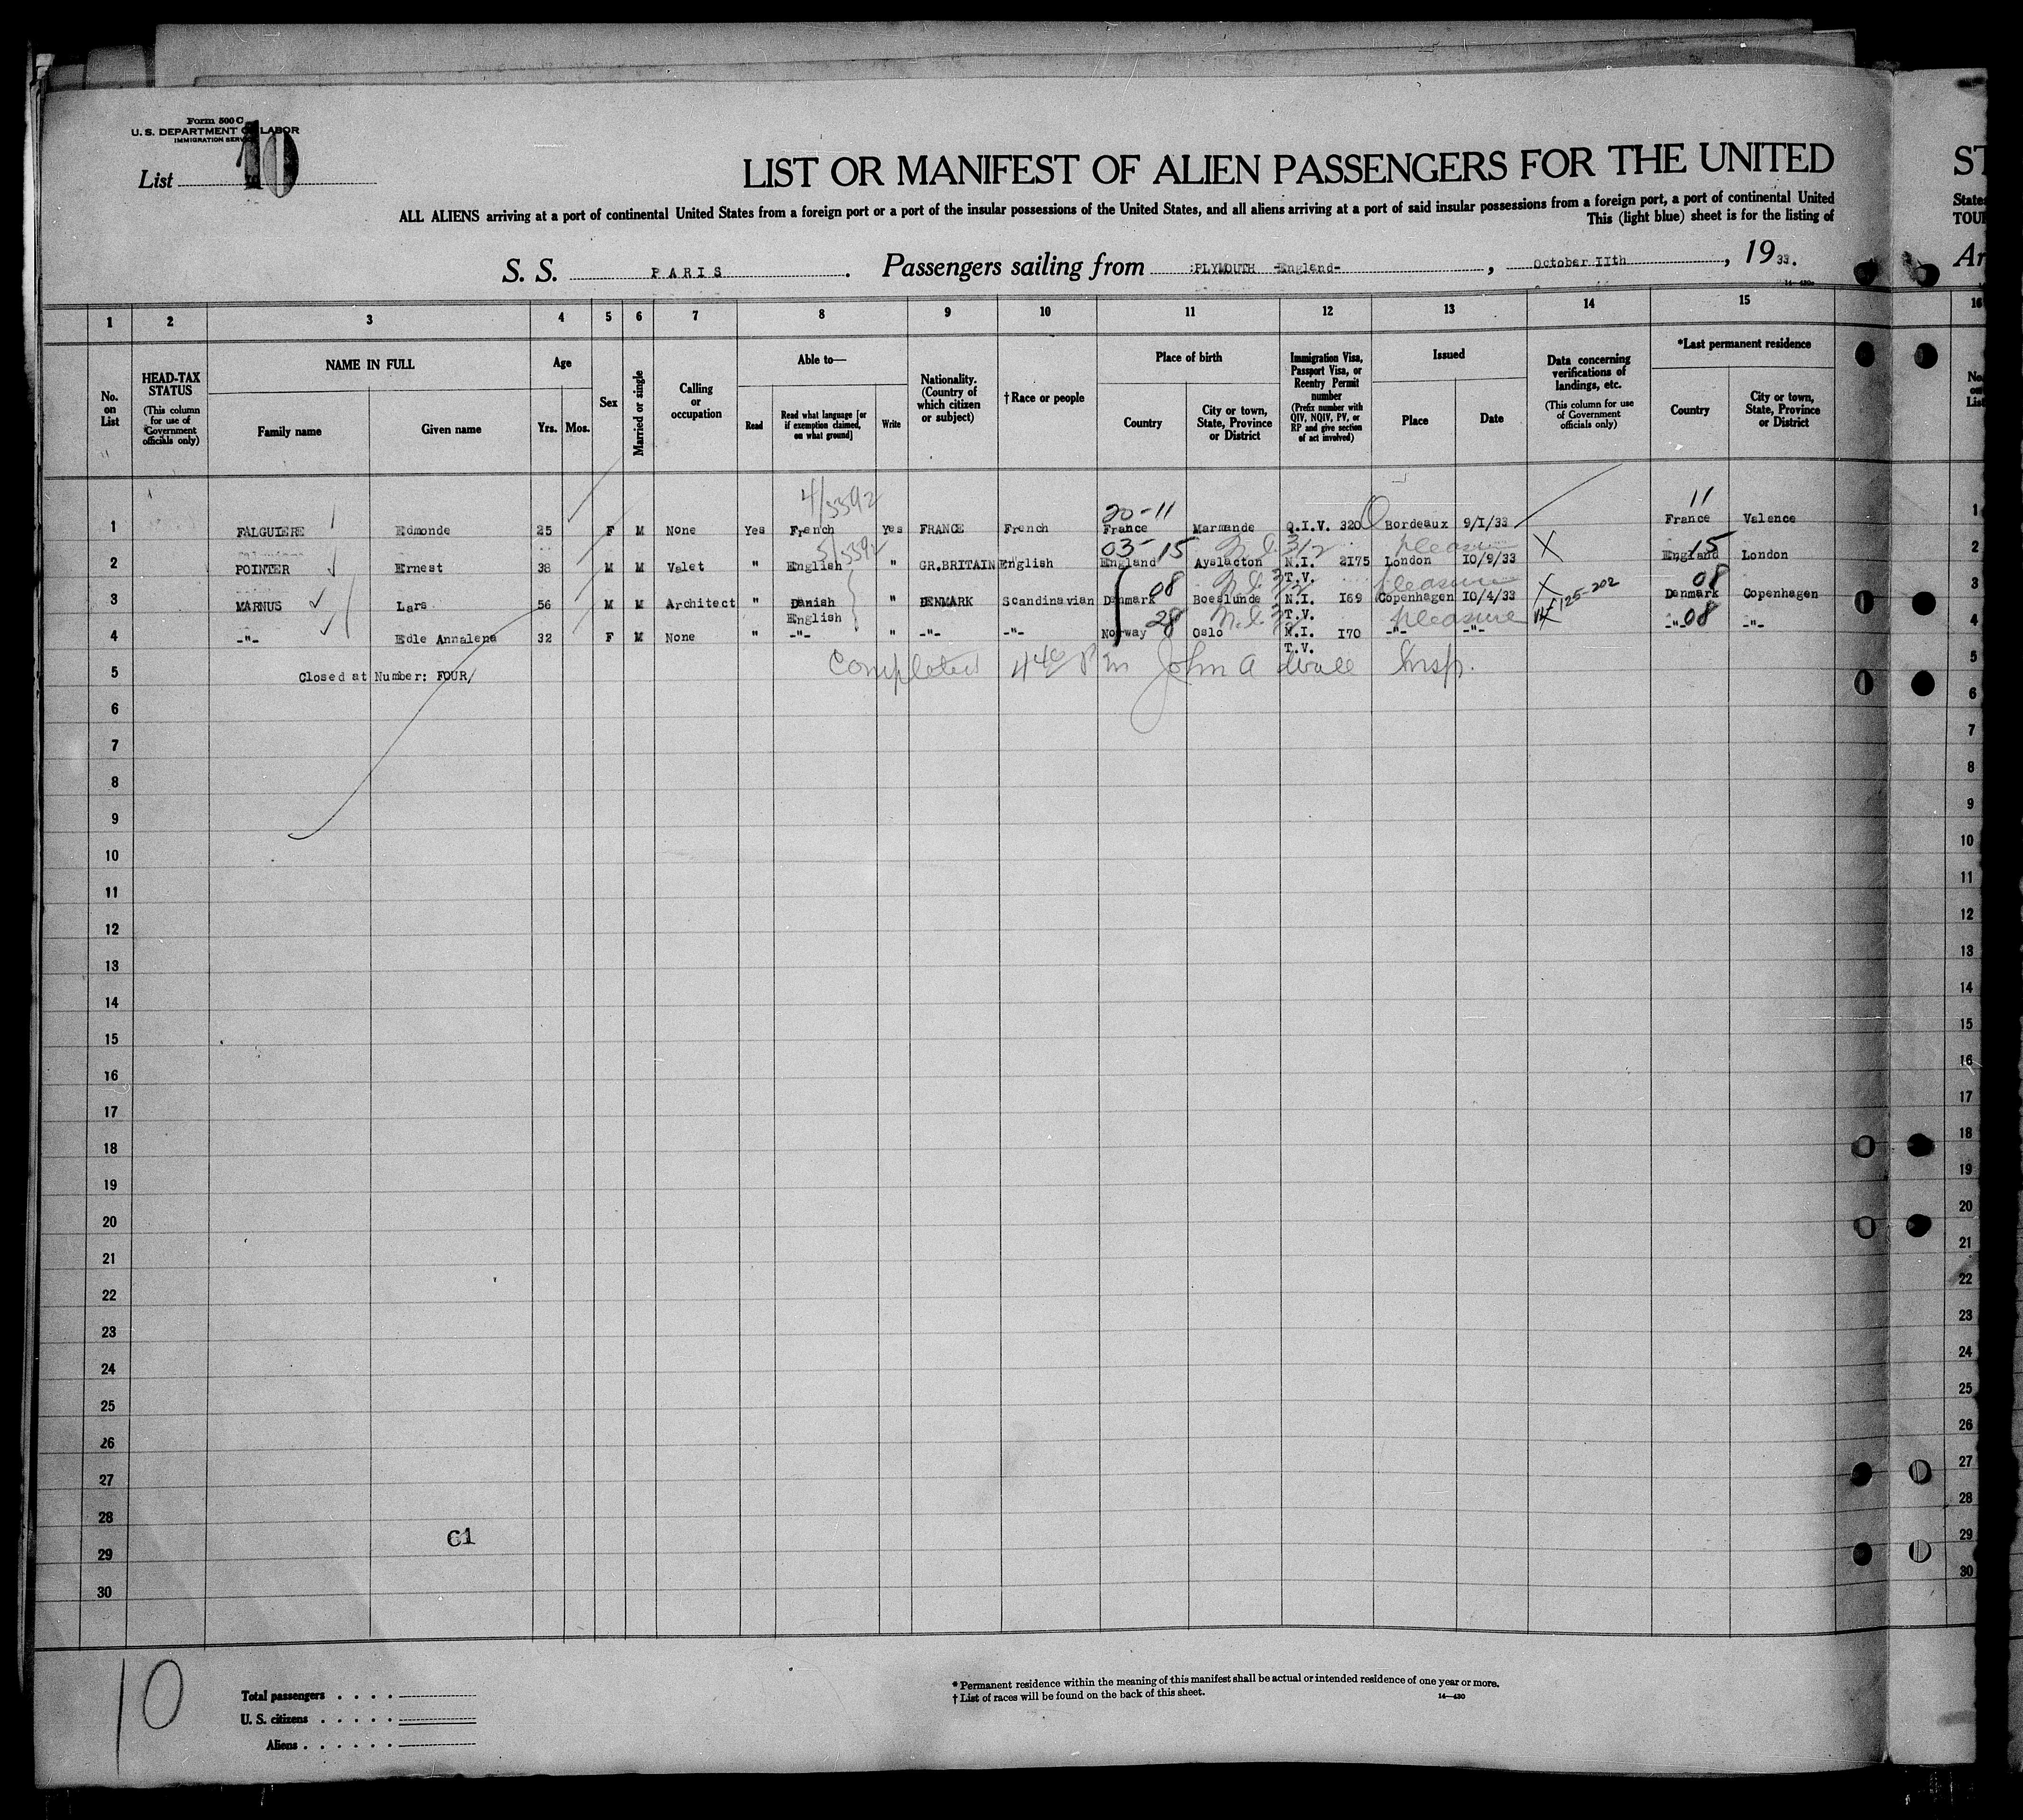 Form 500 C
U. S. DEPARTMENT OF LABOR
IMMIGRATION SERVICE
List 10
LIST OR MANIFEST OF ALIEN PASSENGERS FOR THE UNITED
ST
ALL ALIENS arriving at a port of continental United States from a foreign port or a port of the insular possessions of the United States, and all aliens arriving at a port of said insular possessions from a foreign port, a port of continental United
States
This (light blue) sheet is for the listing of
TOU
S. S. PARIS. Passengers sailing from :PLYMOUTH -England-, October IIth, 1933.
Ar
14-430
1 2 3 4 5 6 7 8 9 10 11 12 13 14 15 16
No. on List
HEAD-TAX STATUS (This column for use of Government officials only)
NAME IN FULL
Family name Given name
Age
Yrs. Mos.
Sex
Married or single
Calling or occupation
Able to—
Read Read what language [or if exemption claimed, on what ground] Write
Nationality. (Country of which citizen or subject)
†Race or people
Place of birth
Country City or town, State, Province or District
Immigration Visa, Passport Visa, or Reentry Permit number (Prefix number with QIV, NQIV, PV, or RP and give section of act involved)
Issued
Place Date
Data concerning verifications of landings, etc. (This column for use of Government officials only)
*Last permanent residence
Country City or town, State, Province or District
4/3392 20-11 11
1 FALGUIERE Edmonde 25 F M None Yes French Yes FRANCE French France Marmande Q.I.V. 320 Bordeaux 9/I/33 France Valence 1
5/3392 03-15 N.I. 3/2 pleasure X 15
2 POINTER Ernest 38 M M Valet " English " GR.BRITAIN English England Ayslacton N.I. 2175 London IO/9/33 England London 2
T.V.
08 pleasure X 08
3 MARNUS Lars 56 M M Architect " Danish " DENMARK Scandinavian Danmark Boeslunde N.I. I69 Copenhagen IO/4/33 Denmark Copenhagen 3
English T.V.
28 pleasure 125-202 08
4 -"- Edle Annalena 32 F M None " -"- " -"- -"- Norway Oslo N.I. I70 -"- -"- -"- -"- 4
T.V.
Completed 4 40 Pm John A Wall Insp.
5 Closed at Number: FOUR/ 5
6 6
7 7
8 8
9 9
10 10
11 11
12 12
13 13
14 14
15 15
16 16
17 17
18 18
19 19
20 20
21 21
22 22
23 23
24 24
25 25
26 26
27 27
28 28
C1
29 29
30 30
10
Total passengers
U. S. citizens
Aliens
* Permanent residence within the meaning of this manifest shall be actual or intended residence of one year or more.
† List of races will be found on the back of this sheet.
14—430